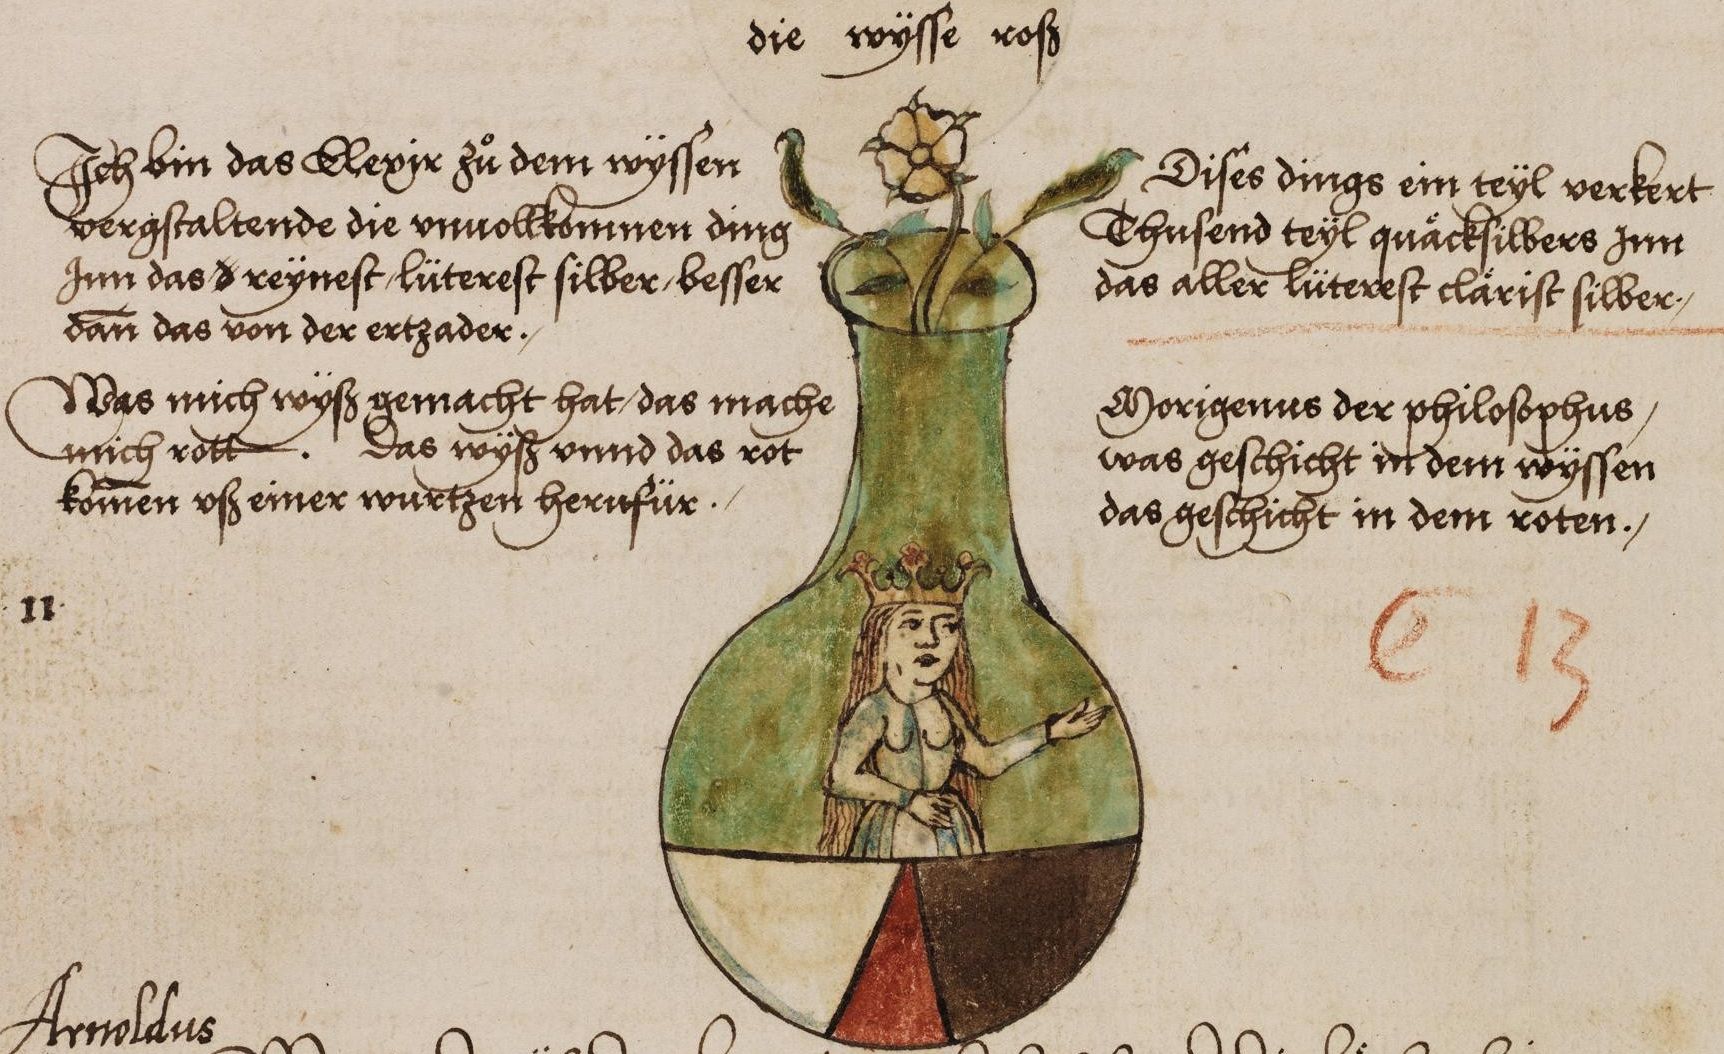 die wÿsse roß
Ich bin das Elexir zů dem wÿssen
vergstaltende die vnuollkomnen ding
Jnn das d reÿnest / lüterest silber / besser
dan̄ das von der ertzader ./
Was mich wÿß gemacht hat / das mache
mich rott . Das wÿß vnnd das rot
kom̄en vß einer wurtzen herufür ./
Dises dings ein teÿl verkert
Thusend teÿl quäcksilbers Jnn
das aller lüterest clärist silber ./
Morigenus der philosophus /
was geschicht in dem wÿssen
das geschicht in dem roten ./
11
C 13
Arnoldus